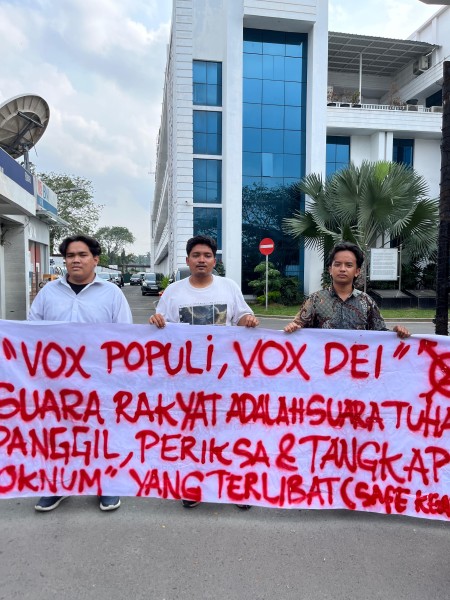 "VOX POPULi, VOX DEI"
SUARA RAKYAT ADALAH SUARA TUHA
PANGGIL, PERIKSA & TANGKAP
OKNUM" YANG TERLIBAT (SAFE